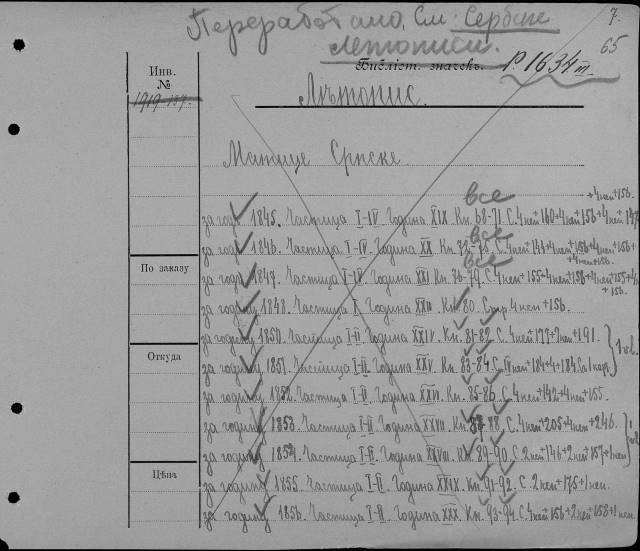 7.
Переработано, См. Сербске
Летописи.
65
Библіот. значекъ. P. 1634 III.
Инв.
№
1919-137.
Лѣтопис.
Матице Српске.
все +4 неп+156.
за год 1845. Частица I-IV Година XIX Кн. 68-71. С. 4неп+160+4неп+156+4неп+147
все
за год 1846. Частица I-IV. Година XX Кн. 72-75. С. 4неп+144+4неп+156+4неп+156+
все +4неп+156.
за год 1847. Частица I-IV Година XXI Кн. 76-79. С. 4неп+155+4неп+156+4неп+155+4
+156.
По заказу
за годину 1848. Частица I. Година XXII Кн. 80. Стр. 4неп+156.
за годину 1850. Частица I-II Година XXIV. Кн. 81-82. С. 4неп+177+2неп+191.
Откуда
за годину 1851. Частица I-II Година XXV. Кн. 83-84. С. IV неп+184+4+184 1 кар.
за годину 1852. Частица I-II Година XXVI. Кн. 85-86. С. 4неп+142+4неп+155.
за годину 1853. Частица I-II Година XXVII. Кн. 87-88. С. 4неп+205+4неп+246.
за годину 1854. Частица I-II Година XXVIII. Кн. 89-90. С. 2неп+146+2неп+157+1неп
Цѣна
за годину 1855. Частица I-II. Година XXIX. Кн. 91-92. С. 2неп+175+1неп.
за годину 1856. Частица I-II. Година XXX. Кн. 93-94. С. 4неп+156+2неп+158+1неп